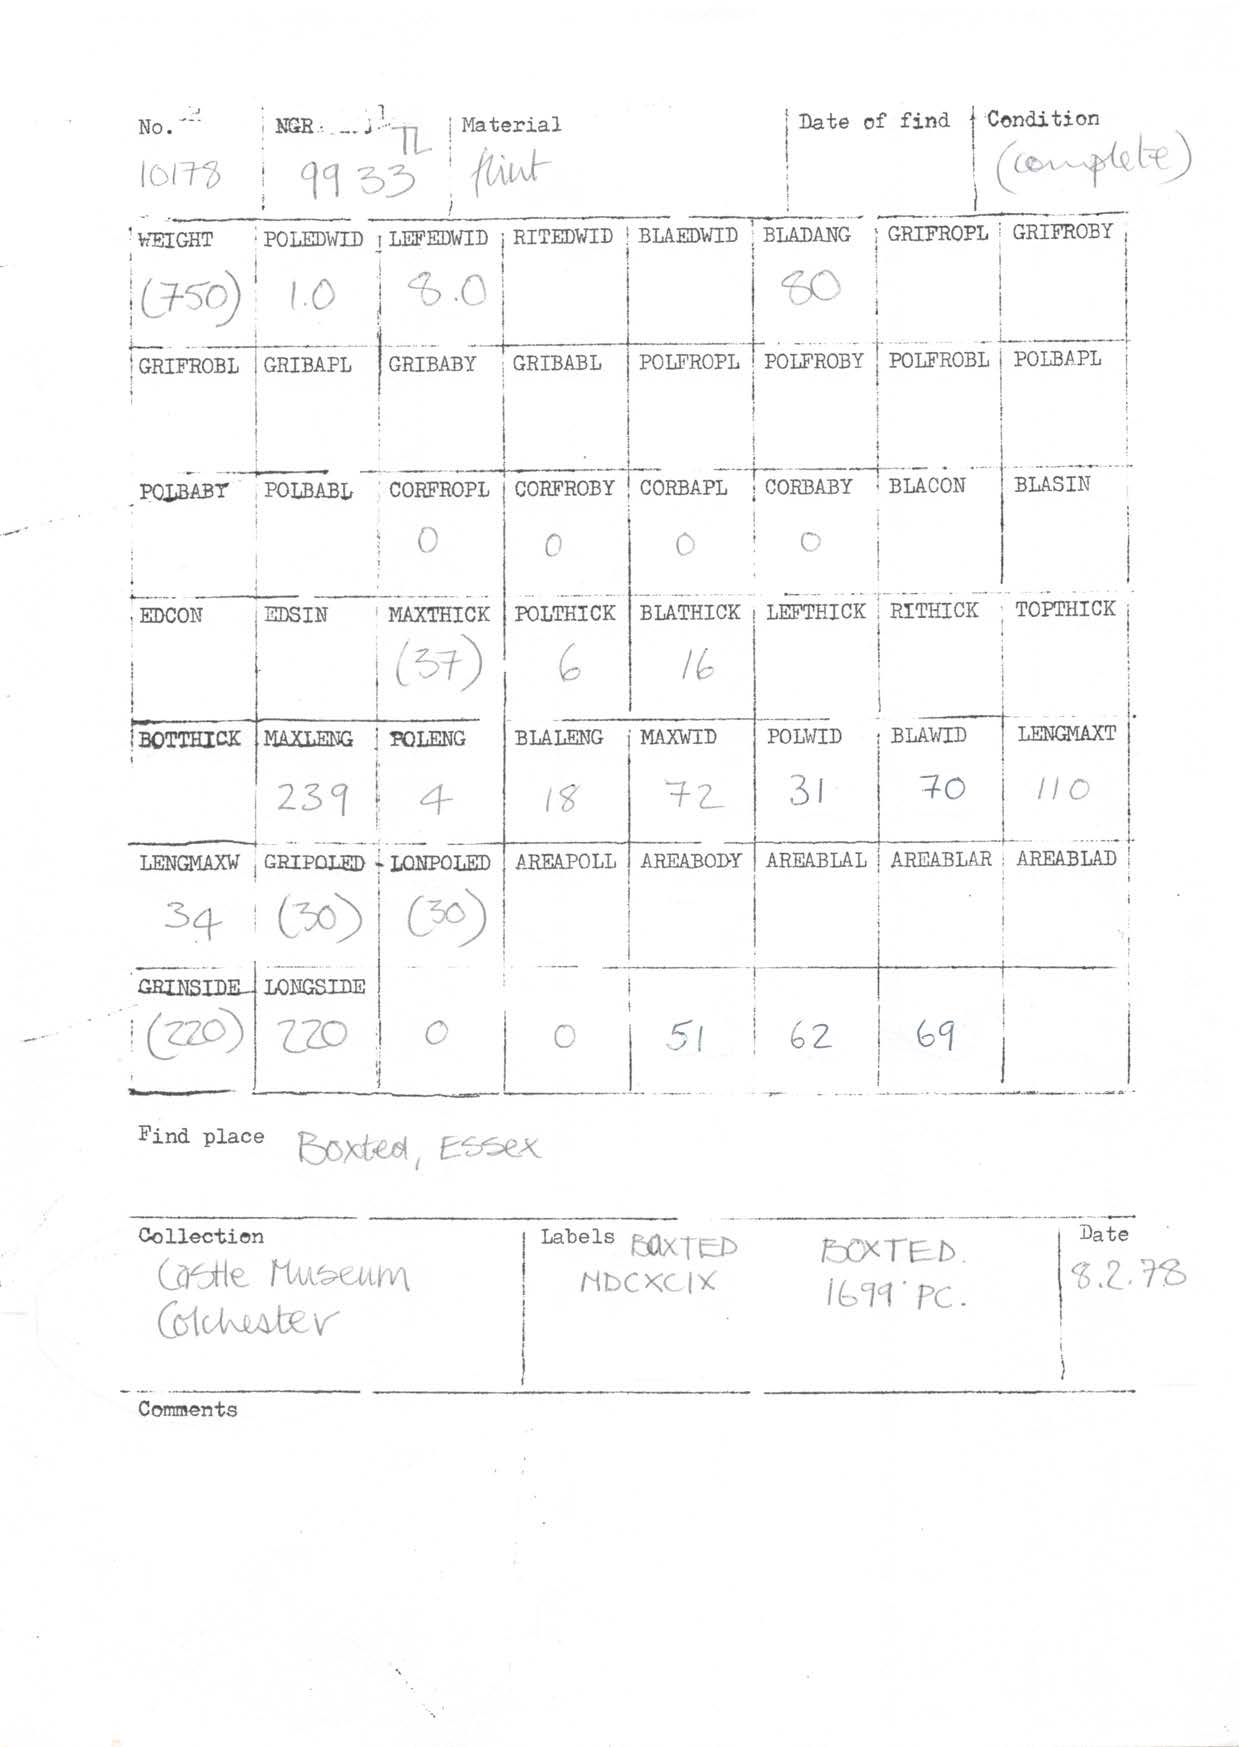 No. NGR. TL Material Date of find Condition
10178 9933 flint (complete)
WEIGHT POLEDWID LEFEDWID RITEDWID BLAEDWID BLADANG GRIFROPL GRIFROBY
(750) 1.0 8.0 80
GRIFROBL GRIBAPL GRIBABY GRIBABL POLFROPL POLFROBY POLFROBL POLBAPL
POLBABY POLBABL CORFROPL CORFROBY CORBAPL CORBABY BLACON BLASIN
0 0 0 0
EDCON EDSIN MAXTHICK POLTHICK BLATHICK LEFTHICK RITHICK TOPTHICK
(37) 6 16
BOTTHICK MAXLENG POLENG BLALENG MAXWID POLWID BLAWID LENGMAXT
239 4 18 72 31 70 110
LENGMAXW GRIPOLED LONPOLED AREAPOLL AREABODY AREABLAL AREABLAR AREABLAD
34 (30) (30)
GRINSIDE LONGSIDE
(220) 220 0 0 51 62 69
Find place Boxted, Essex
Collection Labels BOXTED BOXTED. Date
Castle Museum MDCXCIX 1699 PC. 8.2.78
Colchester
Comments